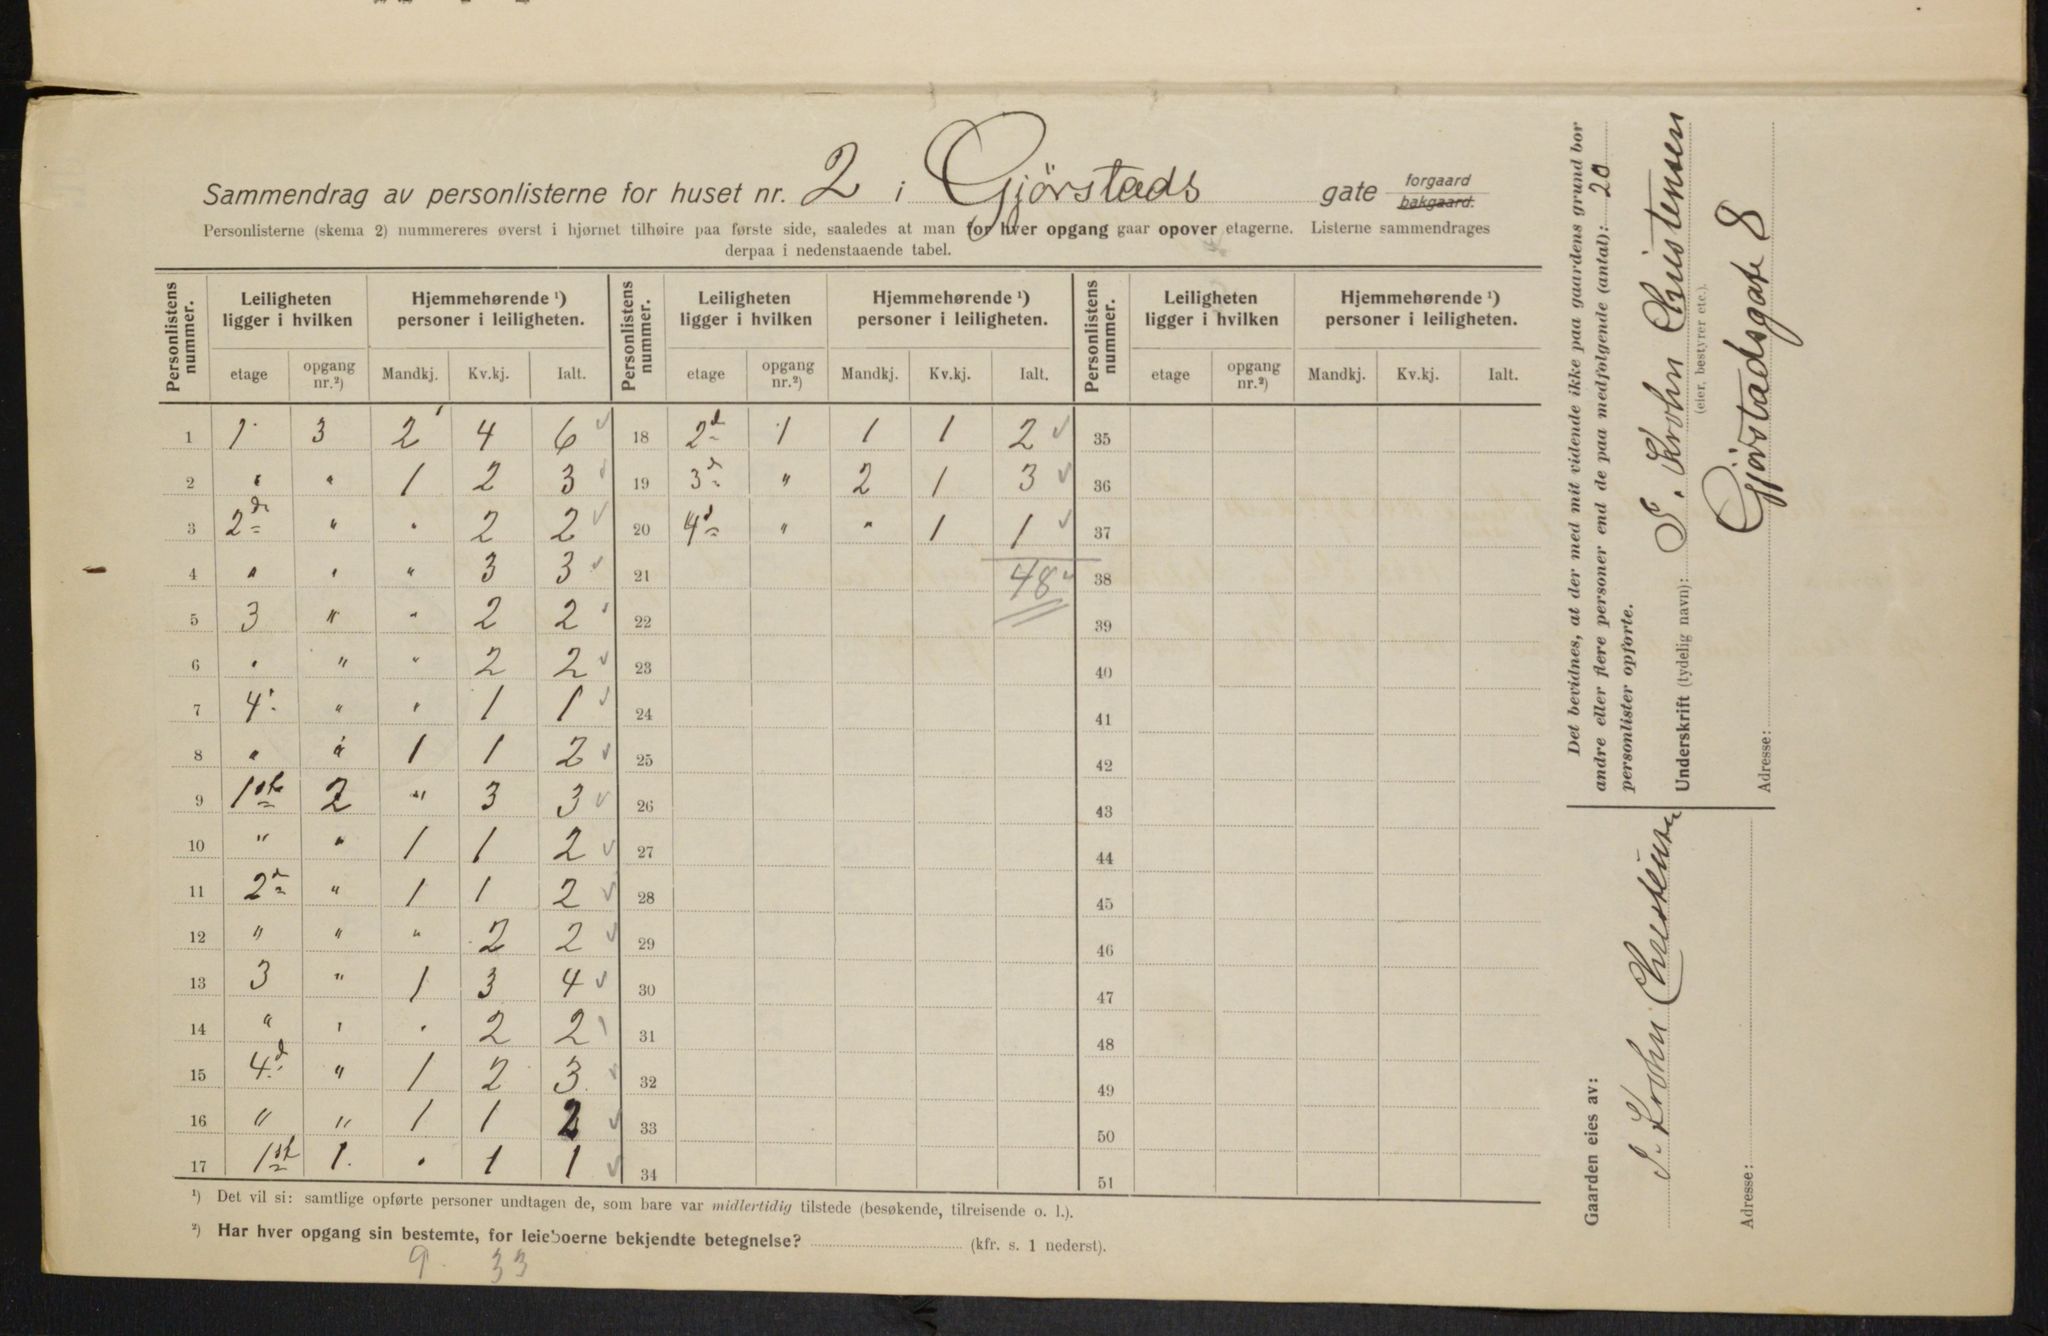 Sammendrag av personlisterne for huset nr. 2 i Gjörstads gate forgaard bakgaard.
Personlisterne (skema 2) nummereres øverst i hjørnet tilhøire paa første side, saaledes at man for hver opgang gaar opover etagerne. Listerne sammendrages
derpaa i nedenstaaende tabel.
Personlistens nummer. | Leiligheten ligger i hvilken | Hjemmehørende ¹) personer i leiligheten. | Personlistens nummer. | Leiligheten ligger i hvilken | Hjemmehørende ¹) personer i leiligheten. | Personlistens nummer. | Leiligheten ligger i hvilken | Hjemmehørende ¹) personer i leiligheten.
etage | opgang nr.²) | Mandkj. | Kv.kj. | Ialt. | etage | opgang nr.²) | Mandkj. | Kv.kj. | Ialt. | etage | opgang nr.²) | Mandkj. | Kv.kj. | Ialt.
1 | 1. | 3 | 2 | 4 | 6 ✓ | 18 | 2d | 1 | 1 | 1 | 2 ✓ | 35
2 | " | " | 1 | 2 | 3 ✓ | 19 | 3d | " | 2 | 1 | 3 ✓ | 36
3 | 2d | " | " | 2 | 2 ✓ | 20 | 4d | " | " | 1 | 1 ✓ | 37
4 | " | " | " | 3 | 3 ✓ | 21 | 48 ✓ | 38
5 | 3 | " | " | 2 | 2 ✓ | 22 | 39
6 | " | " | " | 2 | 2 ✓ | 23 | 40
7 | 4. | " | " | 1 | 1 ✓ | 24 | 41
8 | " | " | 1 | 1 | 2 ✓ | 25 | 42
9 | 1ste | 2 | " | 3 | 3 ✓ | 26 | 43
10 | " | " | 1 | 1 | 2 ✓ | 27 | 44
11 | 2d | " | 1 | 1 | 2 ✓ | 28 | 45
12 | " | " | " | 2 | 2 ✓ | 29 | 46
13 | 3 | " | 1 | 3 | 4 ✓ | 30 | 47
14 | " | " | " | 2 | 2 ✓ | 31 | 48
15 | 4d | " | 1 | 2 | 3 ✓ | 32 | 49
16 | " | " | 1 | 1 | 2 ✓ | 33 | 50
17 | 1st | 1. | " | 1 | 1 ✓ | 34 | 51
¹) Det vil si: samtlige opførte personer undtagen de, som bare var midlertidig tilstede (besøkende, tilreisende o. l.).
²) Har hver opgang sin bestemte, for leieboerne bekjendte betegnelse? (kfr. s. 1 nederst).
9. 33
Det bevidnes, at der med mit vidende ikke paa gaardens grund bor
andre eller flere personer end de paa medfølgende (antal): 20
personlister opførte.
Underskrift (tydelig navn): S. Krohn Christensen
(eier, bestyrer etc.).
Adresse: Gjörstadsgate 8
Gaarden eies av:
S. Krohn Christensen
Adresse: